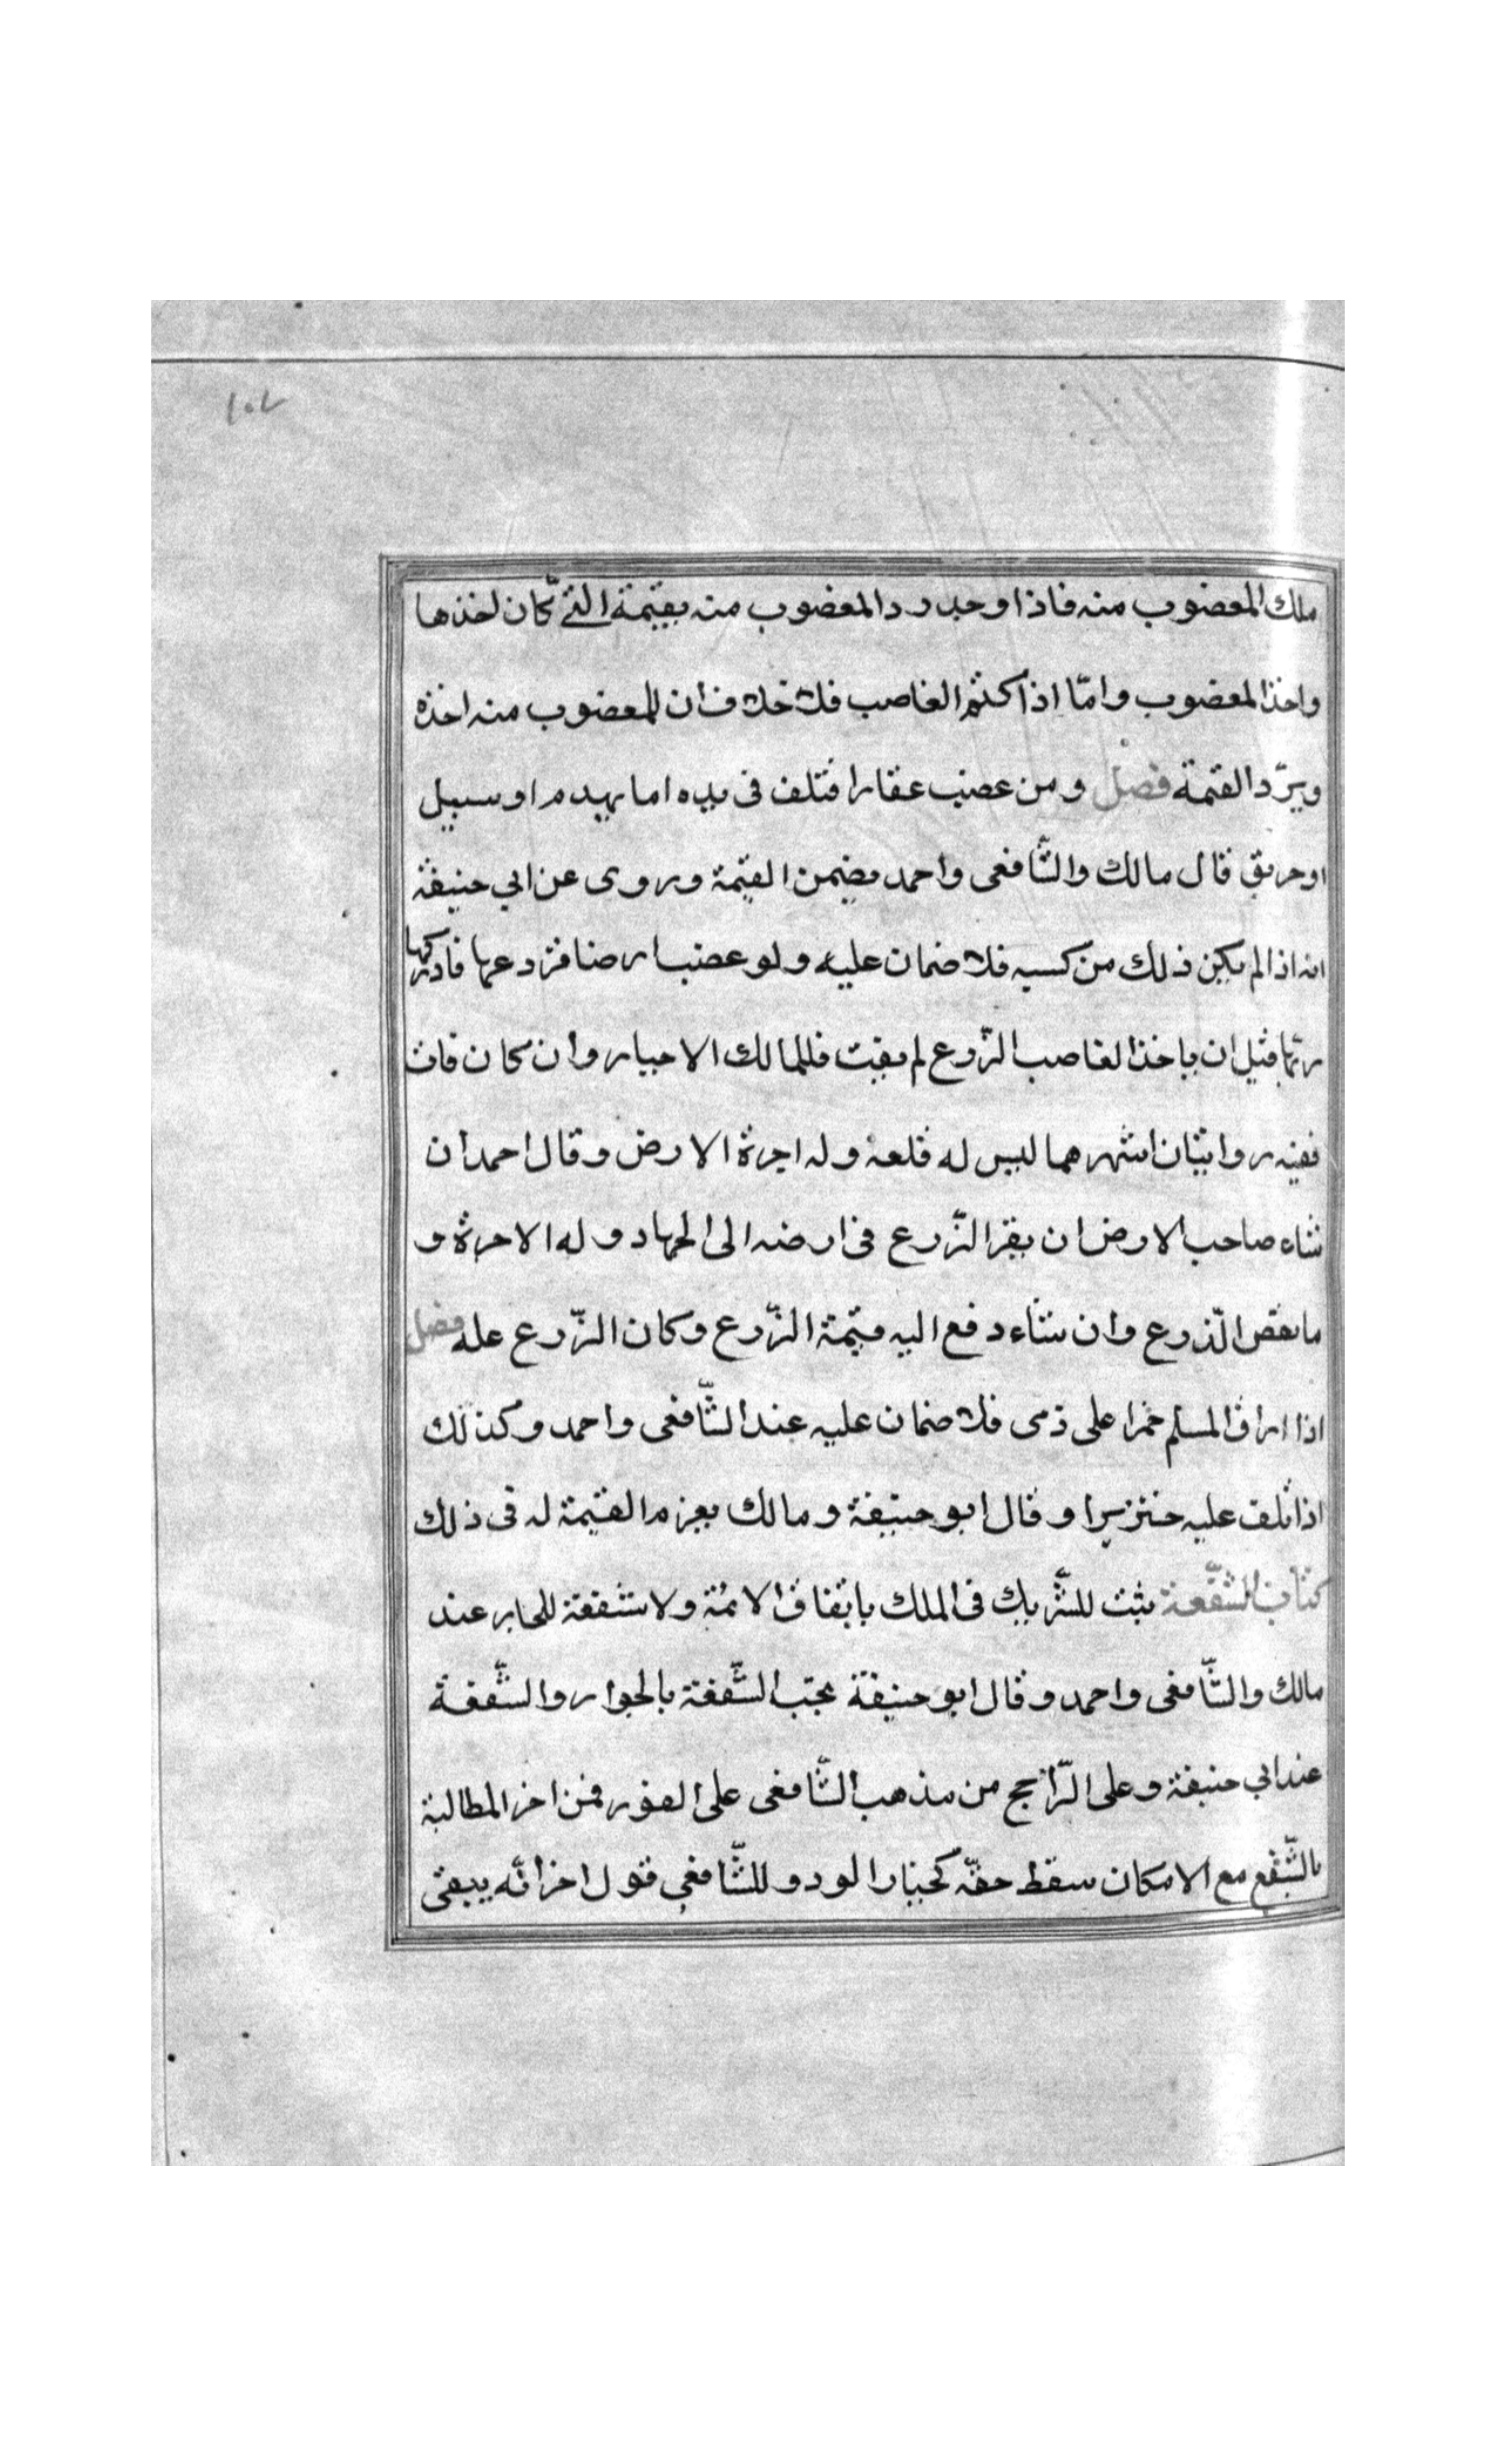 ١٠٧
ملك المغضوب منه فاذا وجد رد المغضوب منه بقيمة التي كان اخذها
واخذ المغضوب وامّا اذا كتم الغاصب فلا خلاف ان للمغضوب منه اخذه
ويردّ القيمة فصل ومن غصب عقارا فتلف فى يده اما بهدم او سبيل
او حريق قال مالك والشّافعى واحمد يضمن القيمة وروى عن ابي حنيفة
انه اذا لم يكن ذلك من كسبه فلا ضمان عليه ولو غصب ارضا فزرعها فادركها
ربّها قبل ان ياخذ الغاصب الزّرع لم يفت فللمالك الاجبار وان كان فات
ففيه روايتان اشهرهما ليس له قلعه وله اجرة الارض وقال احمد ان
شاء صاحب الارض ان يقر الزّرع فى ارضه الى الحصاد وله الاجرة و
ما نقص الزّرع وان شاء دفع اليه قيمة الزّرع وكان الزّرع عله فصل
اذا اراق المسلم خمرا على ذمى فلا ضمان عليه عند الشّافعى واحمد وكذلك
اذا تلف عليه خنزيرا وقال ابو حنيفة ومالك يغرم القيمة له فى ذلك
كتاب الشّفعة يثبت للشّريك فى الملك باتفاق الائمة ولا شفعة للجار عند
مالك والشّافعى واحمد وقال ابو حنيفة يجب الشّفعة بالجوار والشّفعة
عند ابي حنيفة وعلى الرّاجح من مذهب الشّافعى على الفور فمن اخر المطالبة
بالشّفع مع الامكان سقط حقّه كخيار الود وللشّافعي قول اخر انّه يبقى